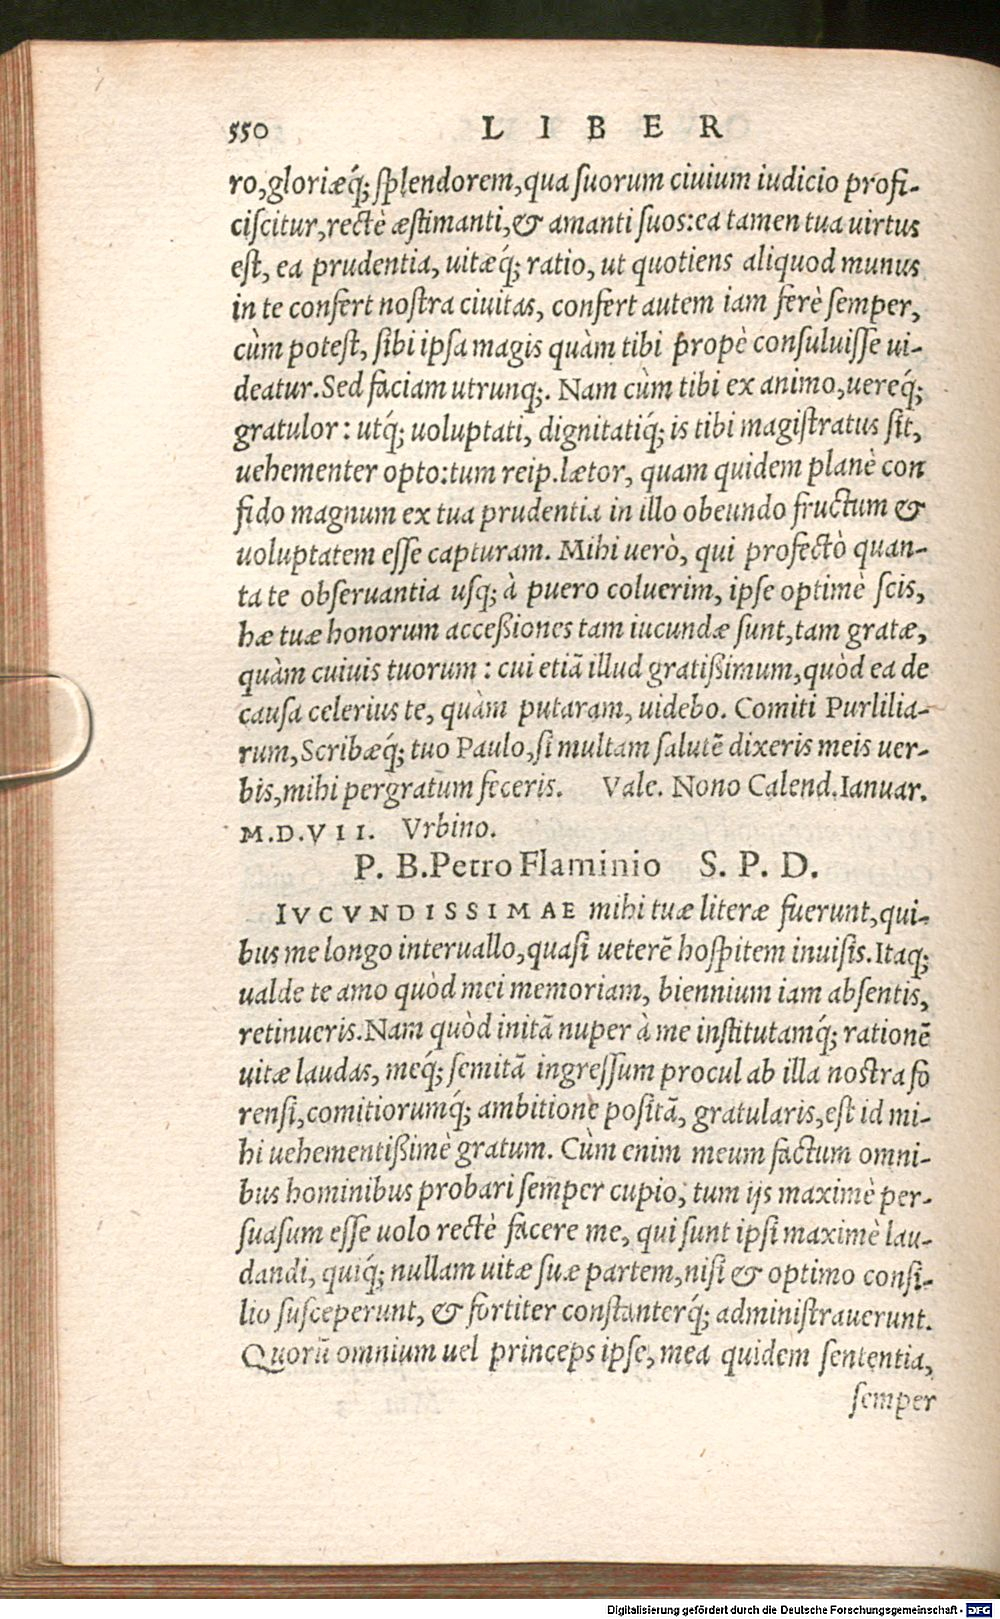 550 LIBER
ro,gloriæq́; splendorem,qua suorum ciuium iudicio profi-
ciscitur,rectè æstimanti,& amanti suos:ea tamen tua uirtus
est, ea prudentia, uitæq́; ratio, ut quotiens aliquod munus
in te confert nostra ciuitas, confert autem iam ferè semper,
cùm potest, sibi ipsa magis quàm tibi propè consuluisse ui-
deatur. Sed faciam utrunq;. Nam cùm tibi ex animo,uereq́;
gratulor: utq́; uoluptati, dignitatiq́; is tibi magistratus sit,
uehementer opto:tum reip.lætor, quam quidem planè con
fido magnum ex tua prudentia in illo obeundo fructum &
uoluptatem esse capturam. Mihi uerò, qui profectò quan-
ta te obseruantia usq; à puero coluerim, ipse optimè scis,
hæ tuæ honorum acceßiones tam iucundæ sunt,tam gratæ,
quàm cuiuis tuorum: cui etiã illud gratißimum,quòd ea de
causa celerius te, quàm putaram, uidebo. Comiti Purlilia-
rum,Scribæq́; tuo Paulo,si multam salutẽ dixeris meis uer-
bis,mihi pergratum feceris. Vale. Nono Calend.Ianuar.
M.D.VII. Vrbino.
P. B.Petro Flaminio S. P. D.
IVCVNDISSIMAE mihi tuæ literæ fuerunt,qui-
bus me longo interuallo,quasi ueterẽ hospitem inuisis.Itaq;
ualde te amo quòd mei memoriam, biennium iam absentis,
retinueris.Nam quòd initã nuper à me institutamq́; rationẽ
uitæ laudas, meq́; semitã ingressum procul ab illa nostra fo
rensi,comitiorumq́; ambitione positã, gratularis,est id mi-
hi uehementißimè gratum. Cùm enim meum factum omni-
bus hominibus probari semper cupio, tum ijs maximè per-
suasum esse uolo rectè facere me, qui sunt ipsi maximè lau-
dandi, quiq́; nullam uitæ suæ partem,nisi & optimo consi-
lio susceperunt, & fortiter constanterq́; administrauerunt.
Quorũ omnium uel princeps ipse, mea quidem sententia,
semper
Digitalisierung gefördert durch die Deutsche Forschungsgemeinschaft - DFG